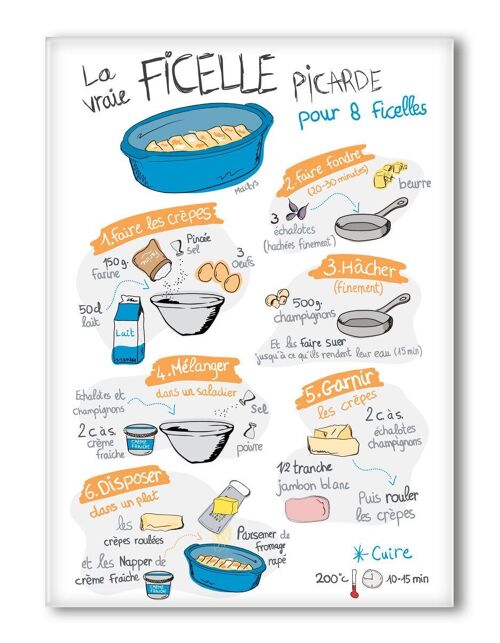 La vraie FICELLE PICARDE
pour 8 ficelles
Maëlys
1.Faire les crêpes
150g.
Farine
Pincée
sel
3
Oeufs
50cl
lait
Lait
2.Faire fondre
(20-30 minutes)
beurre
3
échalotes
(hachées finement)
3.Hâcher
(finement)
500g.
champignons
Et les faire suer
jusqu'à ce qu'ils rendent leur eau (15 min)
4.Mélanger
dans un saladier
Echalotes et
Champignons
sel
2 c.à.s.
crème
fraiche
CRÈME
FRAICHE
poivre
5.Garnir
les crêpes
2 c.à.s.
échalotes
champignons
1/2 tranche
jambon blanc
Puis rouler
les crêpes
6.Disposer
dans un plat
les
crêpes roulées
Parsemer de
fromage
rapé
et les Napper de
crème fraiche
CRÈME
FRAICHE
Cuire
200°c
10-15 min